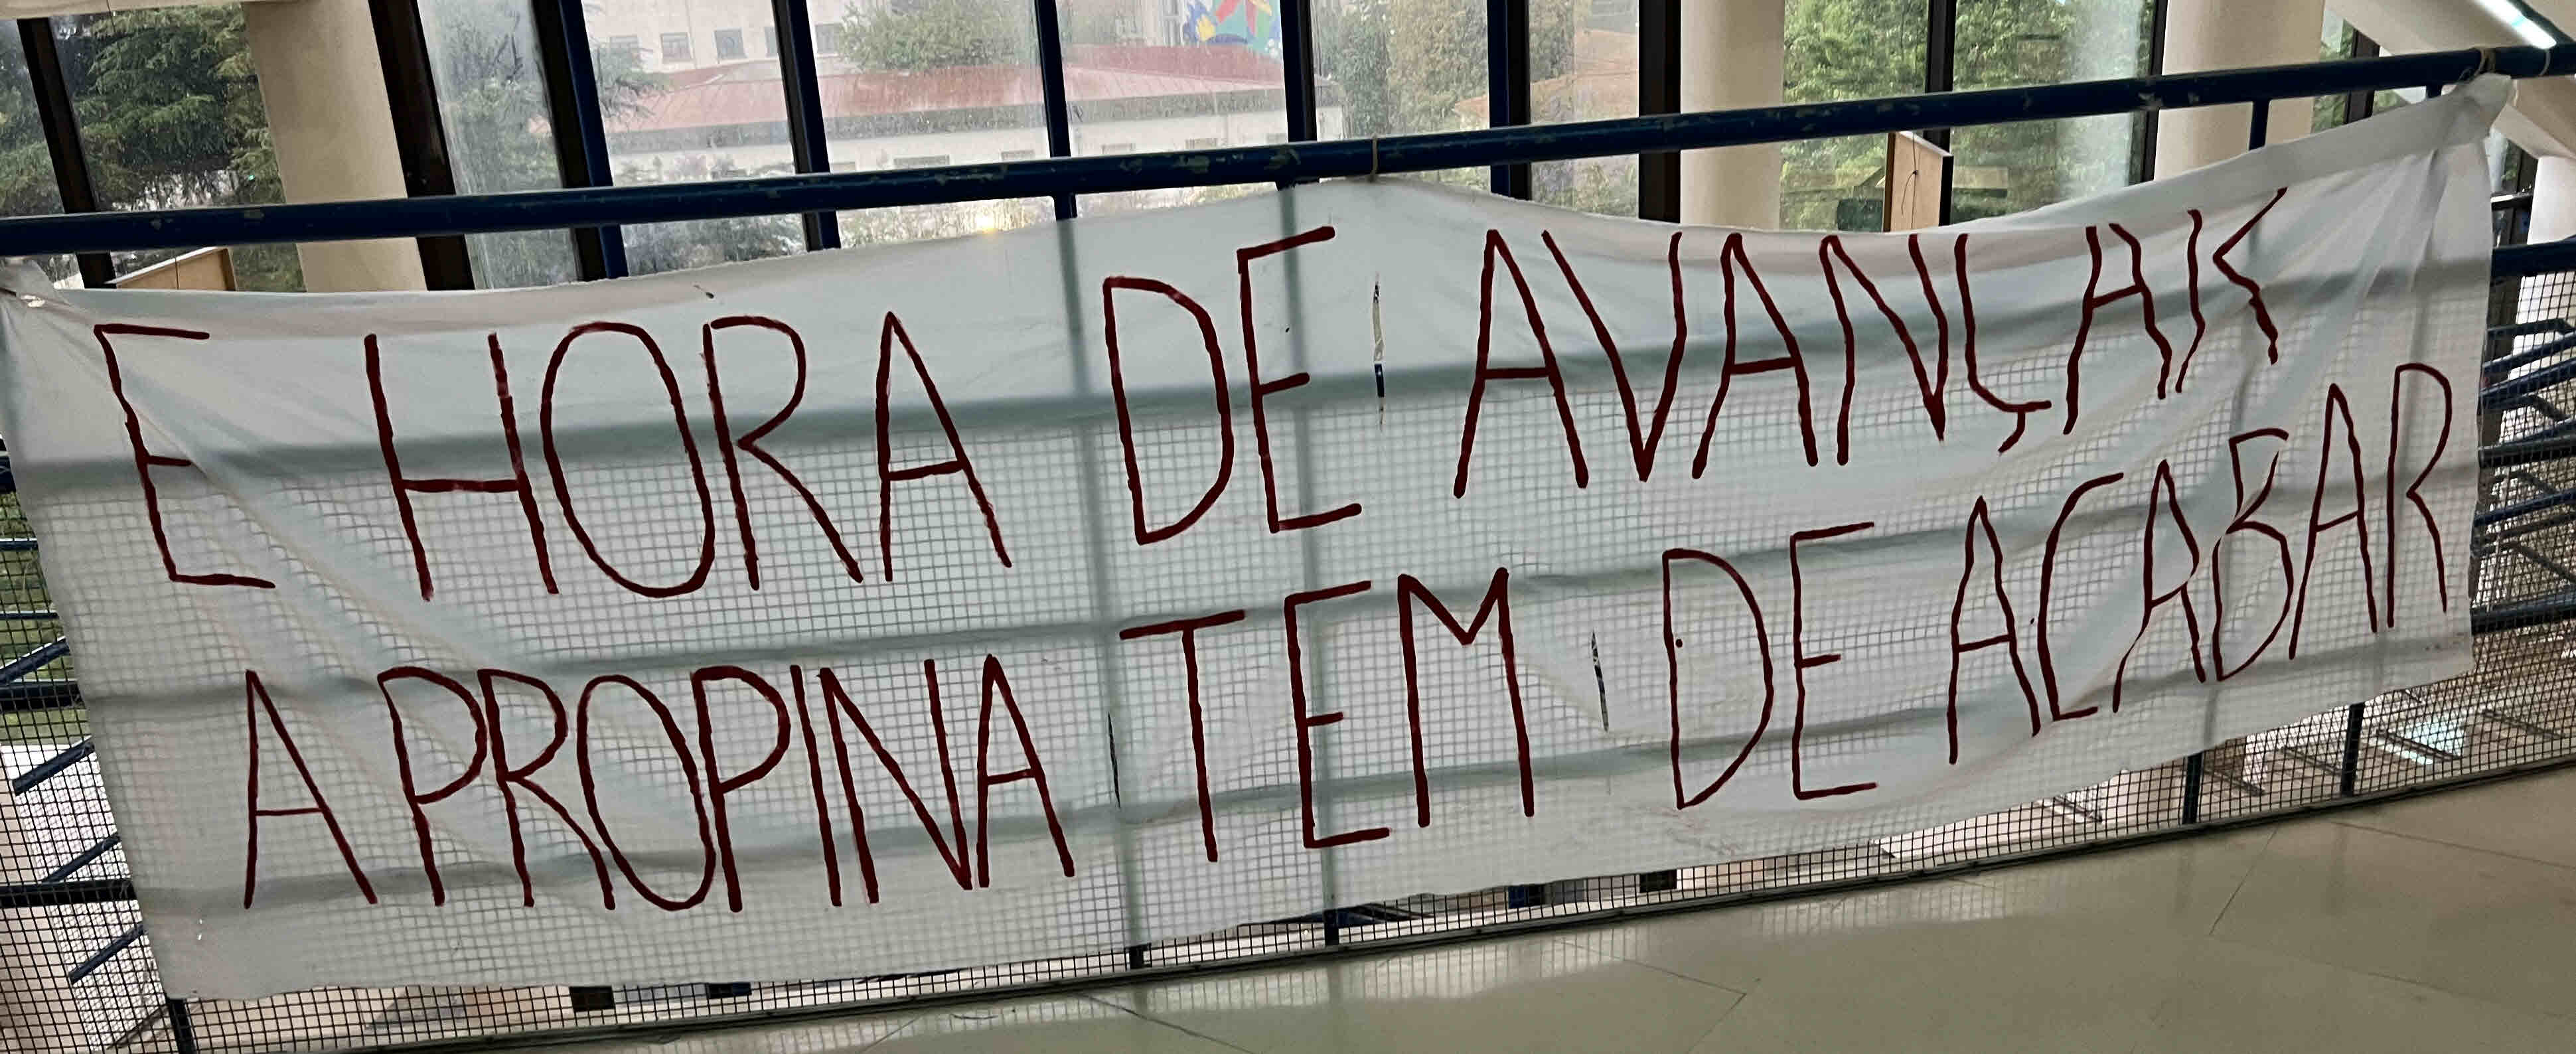 E HORA DE AVANÇAR
A PROPINA TEM DE ACABAR